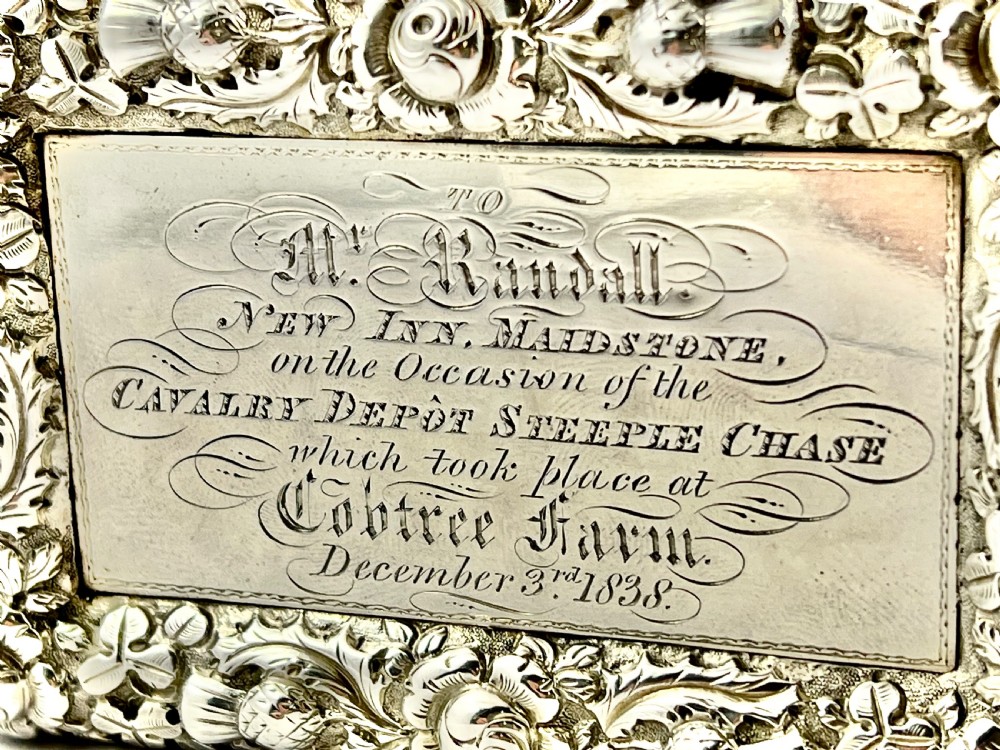 TO
Mr. Randall.
NEW INN, MAIDSTONE,
on the Occasion of the
CAVALRY DEPÔT STEEPLE CHASE
which took place at
Cobtree Farm.
December 3rd. 1838.